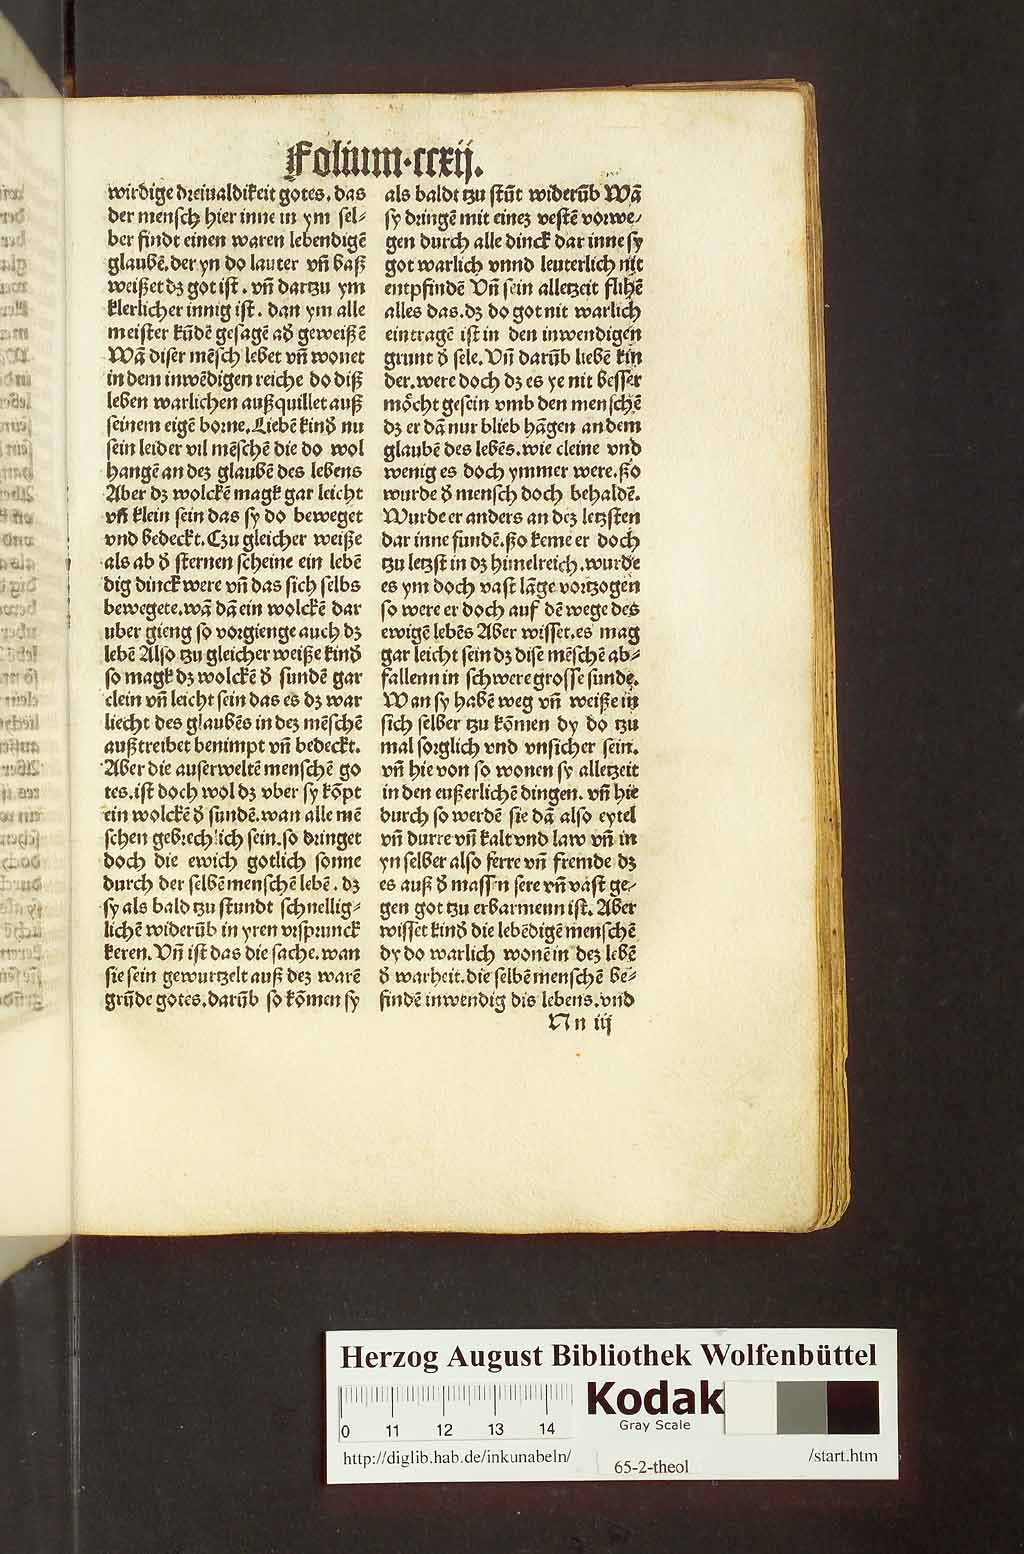 Folium·ccxij.
wirdige dreiualdikeit gotes. das
der mensch hier inne in ym sel⸗
ber findt einen waren lebendigē
glaubē. der yn do lauter vñ baß
weißet dʒ got ist. vñ dartzu ym
klerlicher innig ist. dan ym alle
meister kūdē gesagē ad̕ geweißē
Wā diser mēsch lebet vñ wonet
in dem inwēdigen reiche do diß
leben warlichen außquillet auß
seinem eigē borne. Liebē kind̕ nu
sein leider vil mēschē die do wol
hangē an deʒ glaubē des lebens
Aber dʒ wolckē magk gar leicht
vñ klein sein das sy do beweget
vnd bedeckt. Czu gleicher weiße
als ab d̕ sternen scheine ein lebē
dig dinck were vñ das sich selbs
bewegete. wā dā ein wolckē dar
uber gieng so vorgienge auch dʒ
lebē Also tzu gleicher weiße kind̕
so magk dʒ wolckē d̕ sundē gar
clein vñ leicht sein das es dʒ war
liecht des glaubēs in deʒ mēschē
außtreibet benimpt vñ bedeckt.
Aber die auserweltē menschē go
tes. ist doch wol dʒ vber sy kōpt
ein wolckē d̕ sundē. wan alle mē
schen gebrechlich sein. so dringet
doch die ewich gotlich sonne
durch der selbē menschē lebē. dʒ
sy als bald tzu stundt schnellig⸗
lichē widerūb in yren vrsprunck
keren. Vñ ist das die sache. wan
sie sein gewurtzelt auß deʒ warē
grūde gotes. darūb so kōmen sy
als baldt tzu stūt widerūb Wā
sy dringē mit eineʒ vestē vorwe⸗
gen durch alle dinck dar inne sy
got warlich vnnd leuterlich nit
entpfindē Vñ sein alletzeit flihē
alles das. dʒ do got nit warlich
eintragē ist in den inwendigen
grunt d̕ sele. Vñ darūb liebē kin
der. were doch dʒ es ye nit besser
möcht gesein vmb den menschē
dʒ er dā nur blieb hāgen an dem
glaubē des lebēs. wie cleine vnd
wenig es doch ymmer were. ßo
wurde d̕ mensch doch behaldē.
Wurde er anders an deʒ letzsten
dar inne fundē. ßo keme er doch
tzu letzst in dʒ himelreich. wurde
es ym doch vast lāge vortzogen
so were er doch auf dē wege des
ewigē lebēs Aber wisset. es mag
gar leicht sein dʒ dise mēschē ab⸗
fallenn in schwere grosse sunde.
Wan sy habē weg vñ weiße in
sich selber tzu kōmen dy do tzu
mal sorglich vnd vnsicher sein.
vñ hie von so wonen sy alletzeit
in den eußerlichē dingen. vñ hie
durch so werdē sie dā also eytel
vñ durre vñ kalt vnd law vñ in
yn selber also ferre vñ fremde dʒ
es auß d̕ massn sere vñ vast ge⸗
gen got tzu erbarmenn ist. Aber
wisset kind̕ die lebēdigē menschē
dy do warlich wonē in deʒ lebē
d̕ warheit. die selbē menschē be⸗
findē inwendig dis lebens. vnd
Nn iij
Herzog August Bibliothek Wolfenbüttel
0 11 12 13 14
Kodak
Gray Scale
http://diglib.hab.de/inkunabeln/
65-2-theol
/start.htm